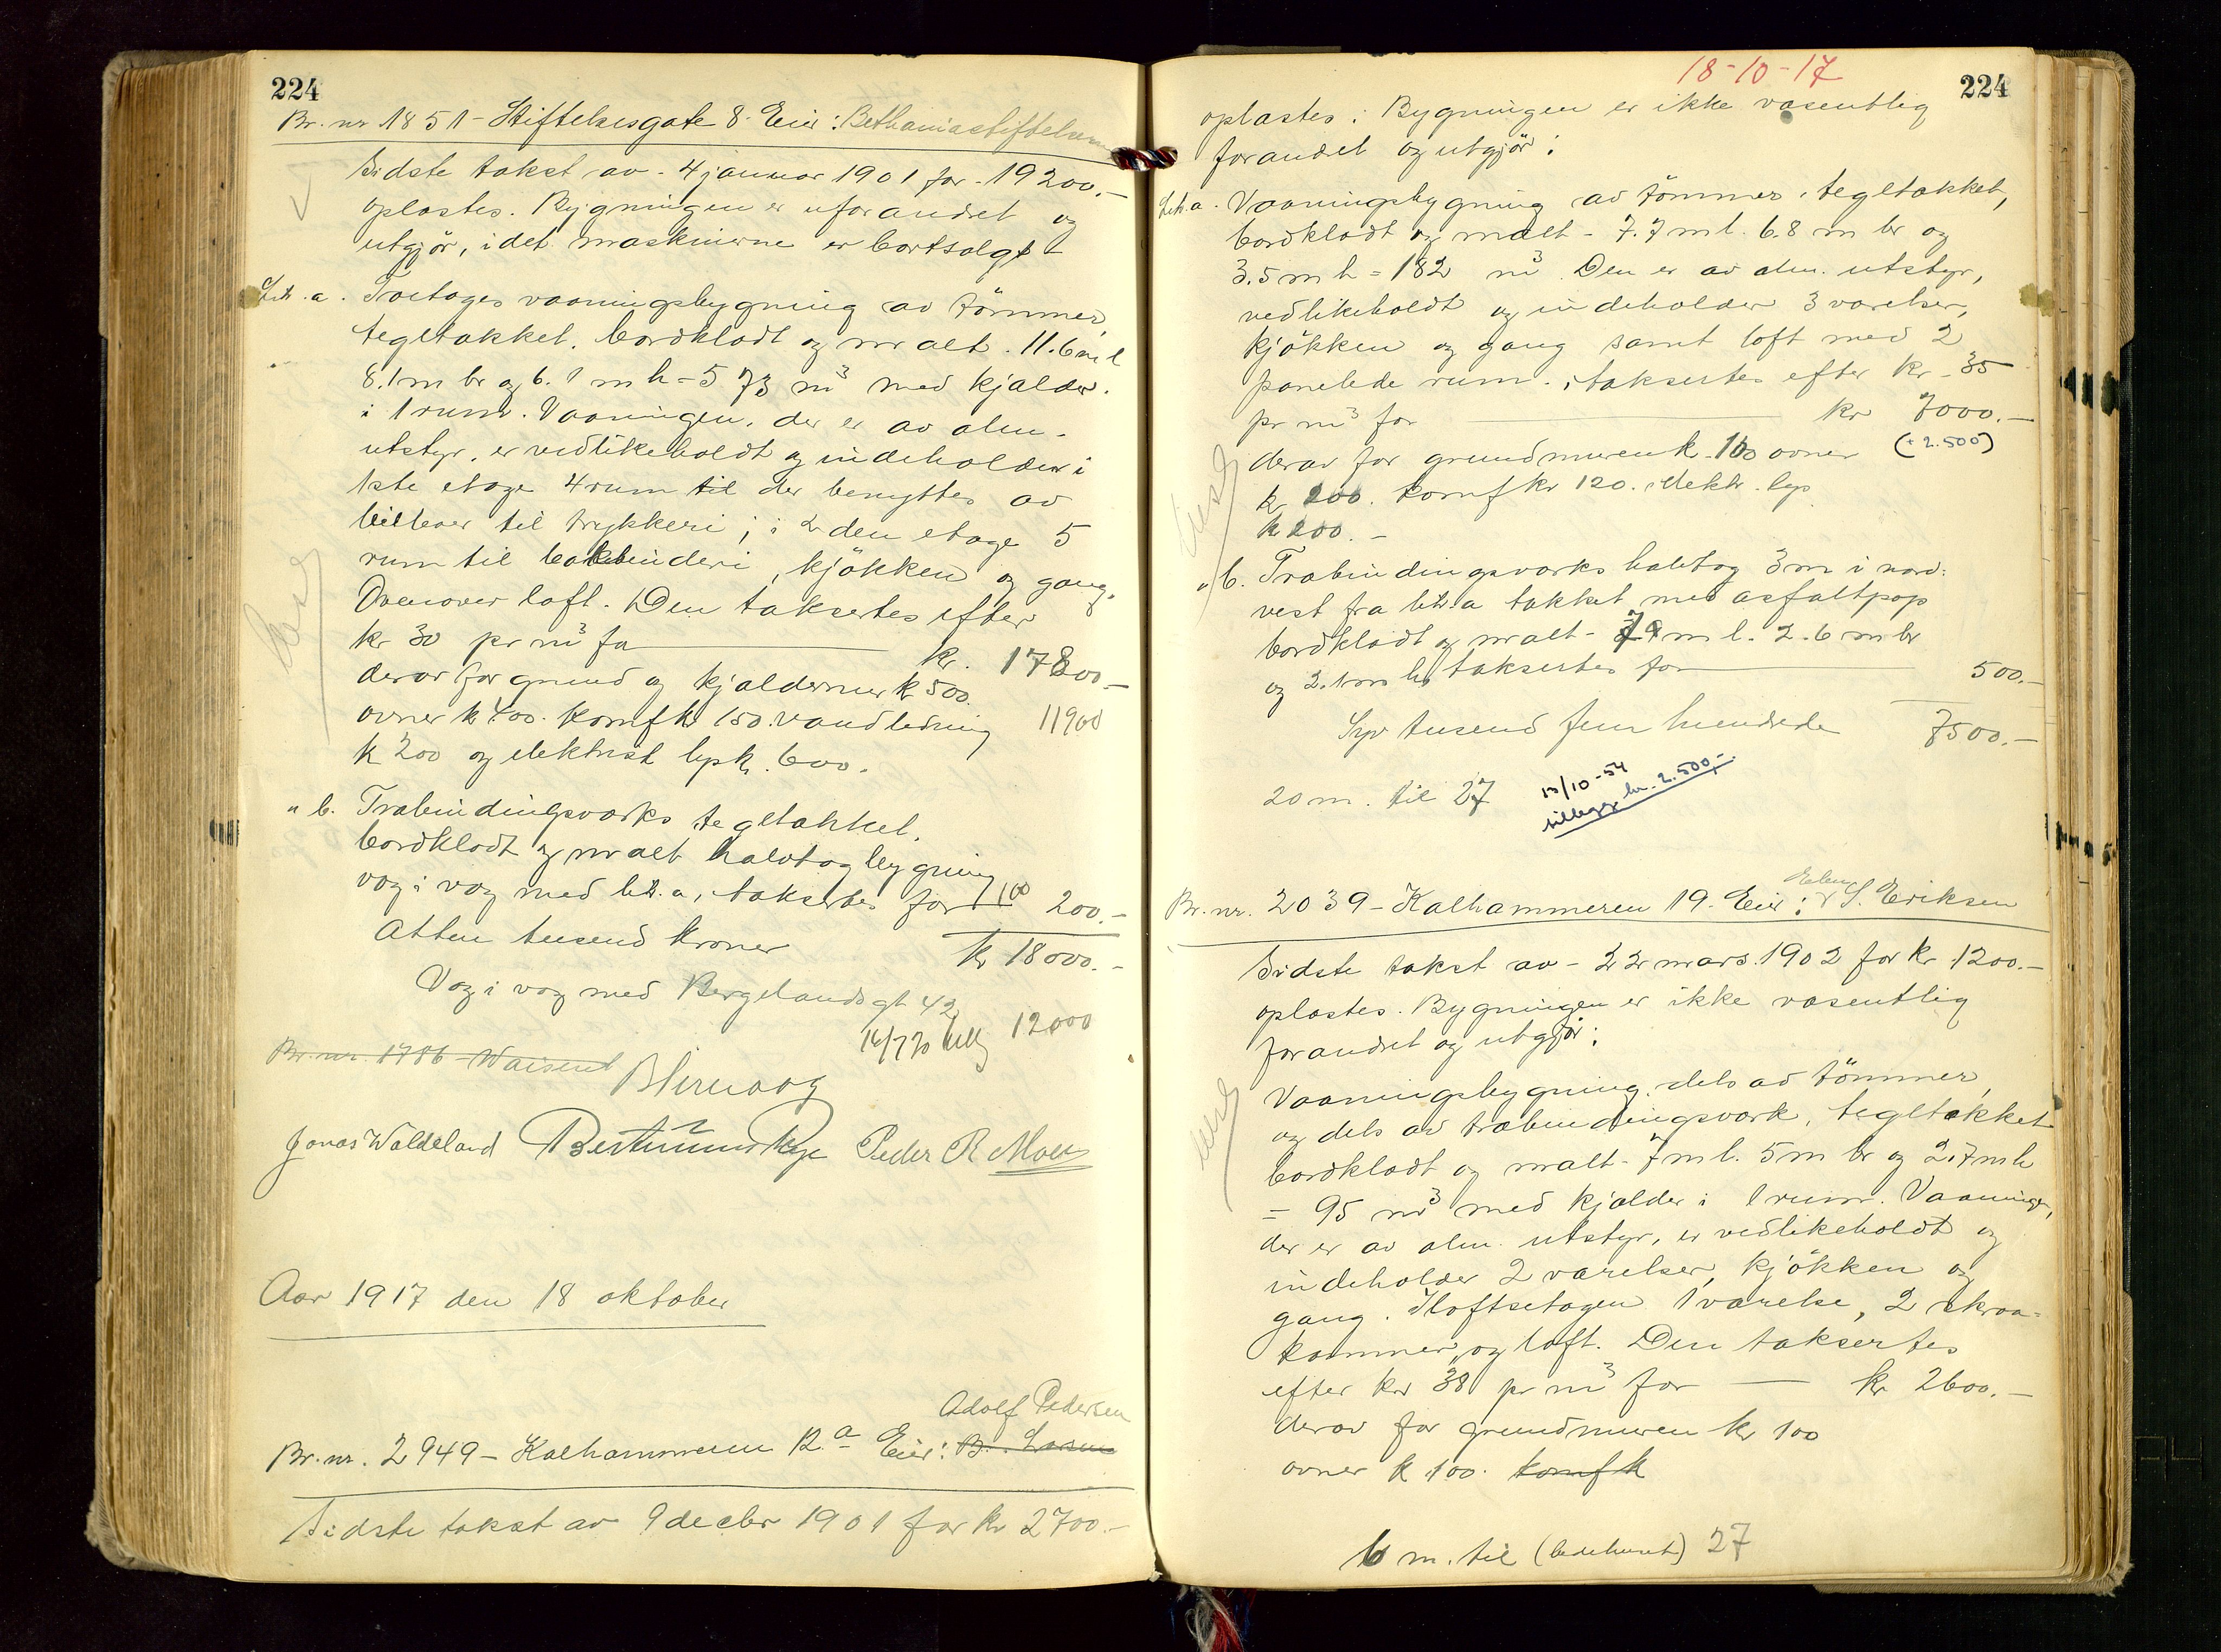 224
Br. nr 1851 - Stiftelsesgate 8. Eier: Bethaniastiftelsen
Sidste takst av - 4 januar 1901 for - 19200.-
oplæstes. Bygningen er uforandret og
utgjör, idet maskinerne er bortsolgt
Litr. a. Toetages vaaningsbygning av tömmer,
tegltækket, bordklædt og malt. 11.6 m l
8.1 m br og 6.1 m h = 573 m3 med kjælder
i 1 rum. Vaaningen, der er av alm.
utstyr, er vedlikeholdt og indeholder i
1ste etage 4 rum til der benyttes av
til trykkeri; i 2den etage 5
rum til bokbinderi, kjökken og gang.
Ovenover loft. Den taksertes efter
kr 30 pr m3 for kr. 17800.-
derav for grund og kjældermur kr 500.
ovner kr 400. Komf kr 150. vandledning 11900
kr 200 og elektrisk lys kr. 600.
" b. Træbindingsværks tegltækket,
bordklædt og malt halvtagbygning
væg i væg med litr. a, taksertes for 100 200.-
Atten tusend kroner kr 18000.-
Væg i væg med Bergelandsgt 42
14/7 20 12000
Br. nr. 1786 - Waisenh
Jonas Waldeland Peder R Moen
Aar 1917 den 18 oktober
Adolf Pedersen
Br. nr. 2949 - Kalhammeren 12.a Eier: B. Larsen
Sidste takst av 9 decbr 1901 for kr 2700.-
18-10-17
224
oplæstes: Bygningen er ikke væsentlig
forandret og utgjör:
Litr. a. Vaaningsbygning av tömmer, tegltækket,
bordklædt og malt - 7.7 m l. 6.8 m br og
3.5 m h = 182 m3. Den er av alm. utstyr,
vedlikeholdt og indeholder 3 værelser,
kjökken og gang samt loft med 2
panelede rum. taksertes efter kr 35
pr m3 for kr 7000.-
derav for grundmuren k. 100 ovner (+2.500)
kr 200. komf kr 120. elektr. lys
kr 200. -
" b. Træbindingsværks halvtag 3 m i nord-
vest fra litr. a tækket med asfaltpap
bordklædt og malt - m l. 2.6 m br
og 2.1 m h, taksertes for 500.-
Syv tusend fem hundrede 7500.-
20 m. til 27
13/10-54
tillegg kr. 2.500,-
Br. nr. 2039 - Kalhammeren 19. Eier: S. Eriksen
Sidste takst av - 22 mars 1902 for kr 1200.-
oplæstes. Bygningen er ikke væsentlig
forandret og utgjör:
Vaaningsbygning, dels av tömmer,
og dels av træbindingsværk, tegltækket
bordklædt og malt - 7 m l. 5 m br og 2.7 m h
= 95 m3 med kjælder i 1 rum. Vaaningen,
der er av alm. utstyr, er vedlikeholdt og
indeholder 2 værelser, kjökken og
gang. I loftsetagen 1 værelse, 2 skraa-
kammer, og loft. Den taksertes
efter kr 38 pr m3 for kr 2600.-
derav for grundmuren kr 100
ovner k 100. komf k
6 m. til (bedehuset) 27